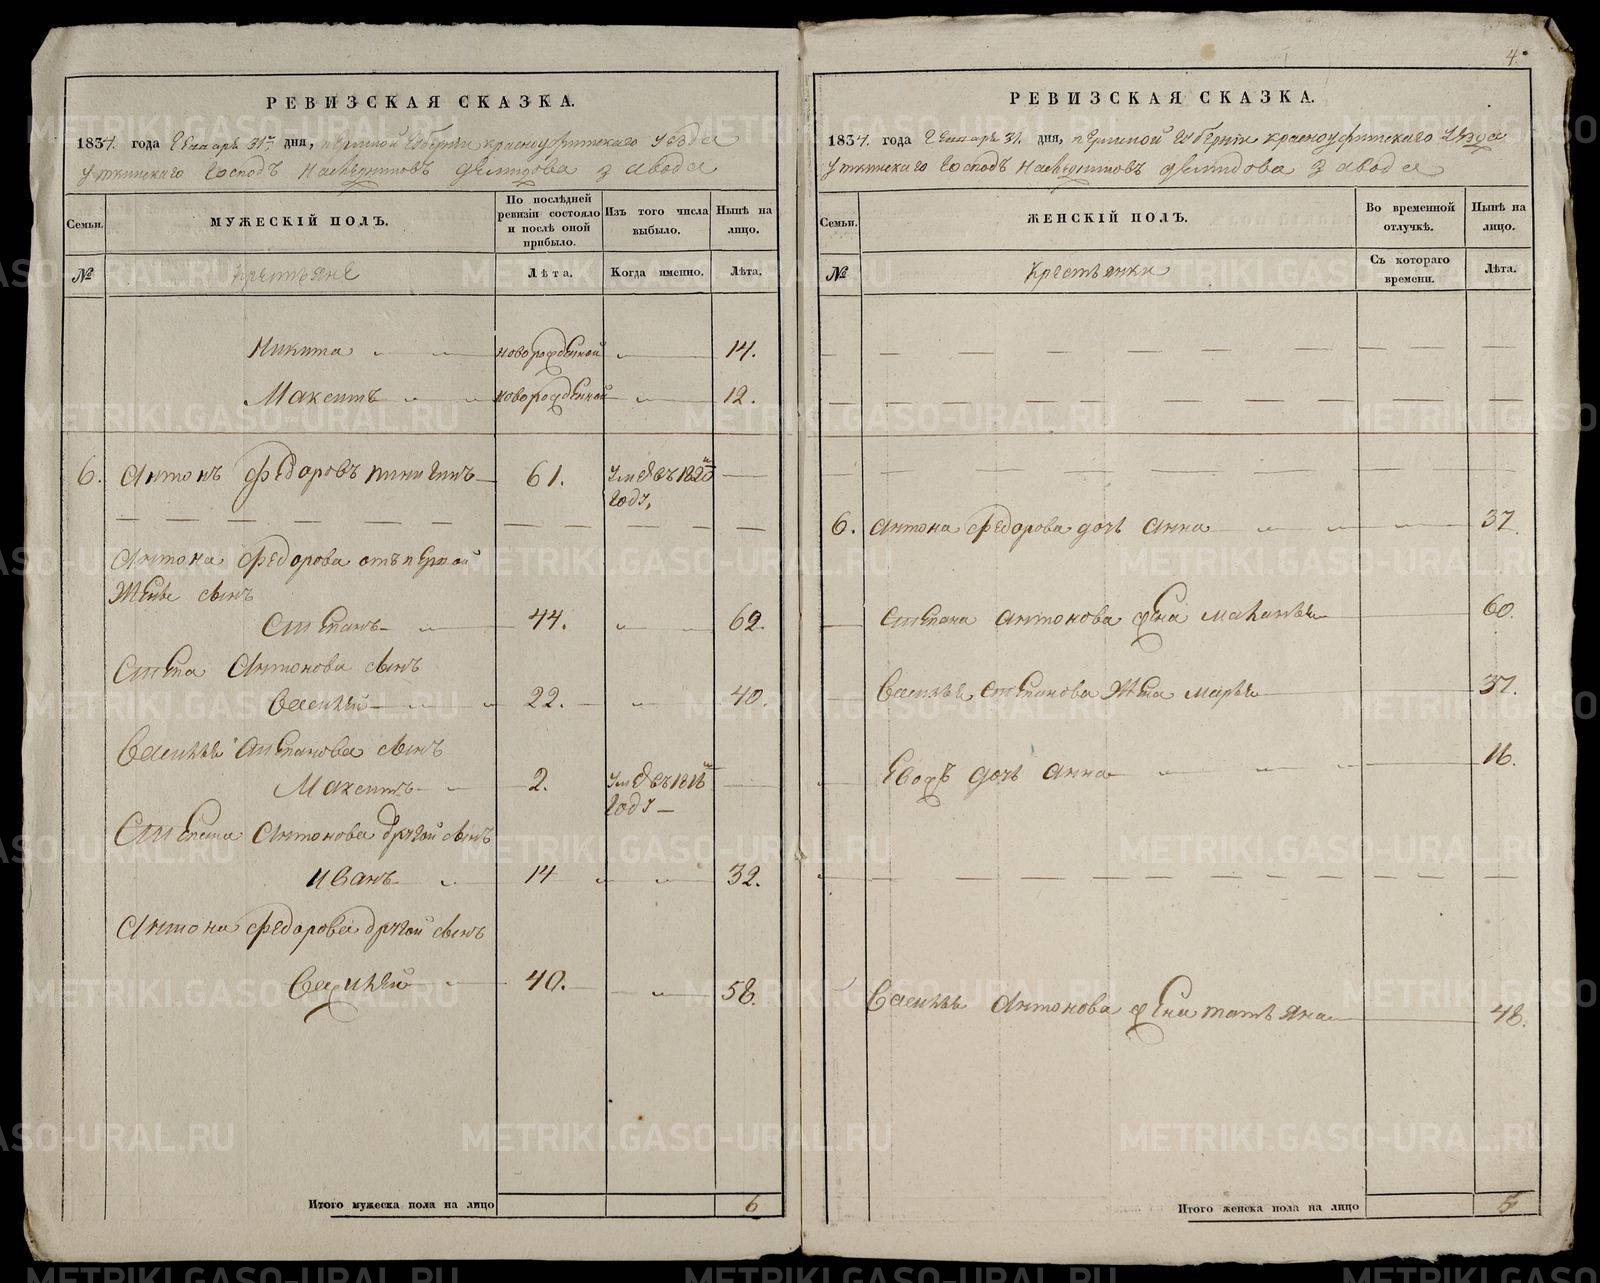 4.
РЕВИЗСКАЯ СКАЗКА.
1834. года Генваря 31го дня, Пермской Губерніи Красноуфимскаго уѣзда
Уткинскаго Господъ Наследниковъ Демидова завода
Семьи. МУЖЕСКІЙ ПОЛЪ. По послѣдней ревизіи состояло и послѣ оной прибыло. Изъ того числа выбыло. Нынѣ на лицо.
№ Крестьяне Лѣта. Когда именно. Лѣта.
Никита новорожденной 14.
Максимъ новорожденной 12.
6. Антонъ Федоровъ 61. Умре въ
году,
Антона Федорова отъ первой
Жены сынъ
Степанъ 44. 62.
Степа Антонова сынъ
Василей 22. 40.
Василья Степанова сынъ
Максимъ 2. Умре въ 1816м
году
Степана Антонова другой сынъ
Иванъ 14 32.
Антона Федорова другой сынъ
Василей 40. 58.
Итого мужеска пола на лицо 6
РЕВИЗСКАЯ СКАЗКА.
1834. года Генваря 31. дня, Пермской Губерніи Красноуфимскаго уѣзда
Уткинскаго Господъ Наследниковъ Демидова завода
Семьи. ЖЕНСКІЙ ПОЛЪ. Во временной отлучкѣ. Нынѣ на лицо.
№ Крестьянки Съ котораго времени. Лѣта.
6. Антона Федорова дочь Анна 37.
Степана Антонова жена 60.
Василья Степанова Жена Марья 37.
Евохъ дочь Анна 16.
Василья Антонова жена Татьяна 48.
Итого женска пола на лицо 5
METRIKI.GASO-URAL.RU